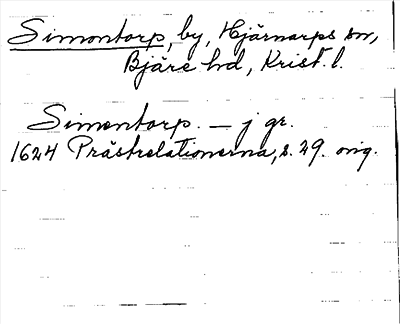 Simontorp, by, Hjärnarps sn,
Bjäre hd, Krist. l.
Simontorp. — j gr.
1624 Prästrelationerna, s. 29. orig.